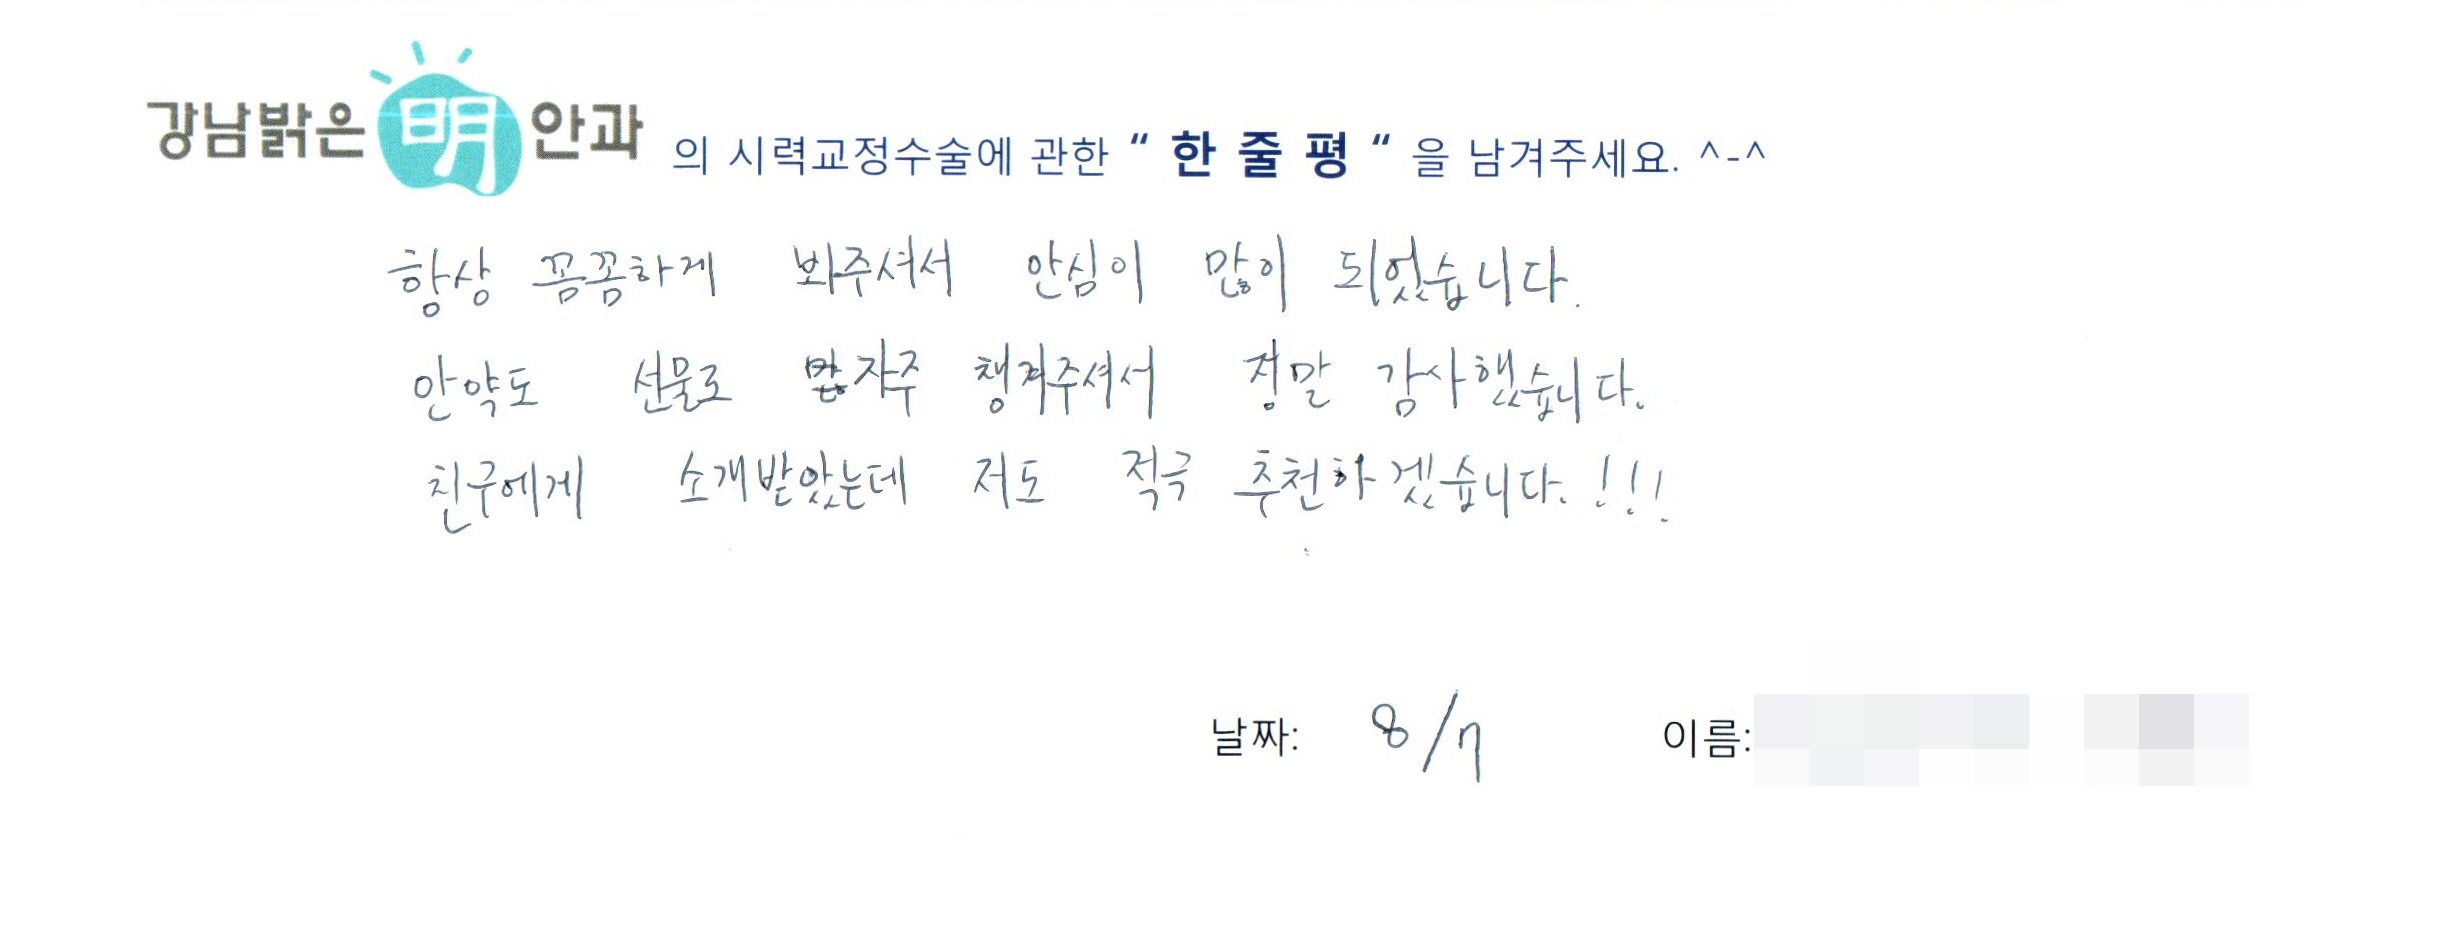 강남밝은明안과 의 시력교정수술에 관한 “ 한 줄 평 “ 을 남겨주세요. ^-^
항상 꼼꼼하게 봐주셔서 안심이 많이 되었습니다.
안약도 선물로 자주 챙겨주셔서 정말 감사했습니다.
친구에게 소개받았는데 저도 적극 추천하겠습니다.!!!
날짜: 8/7 이름: